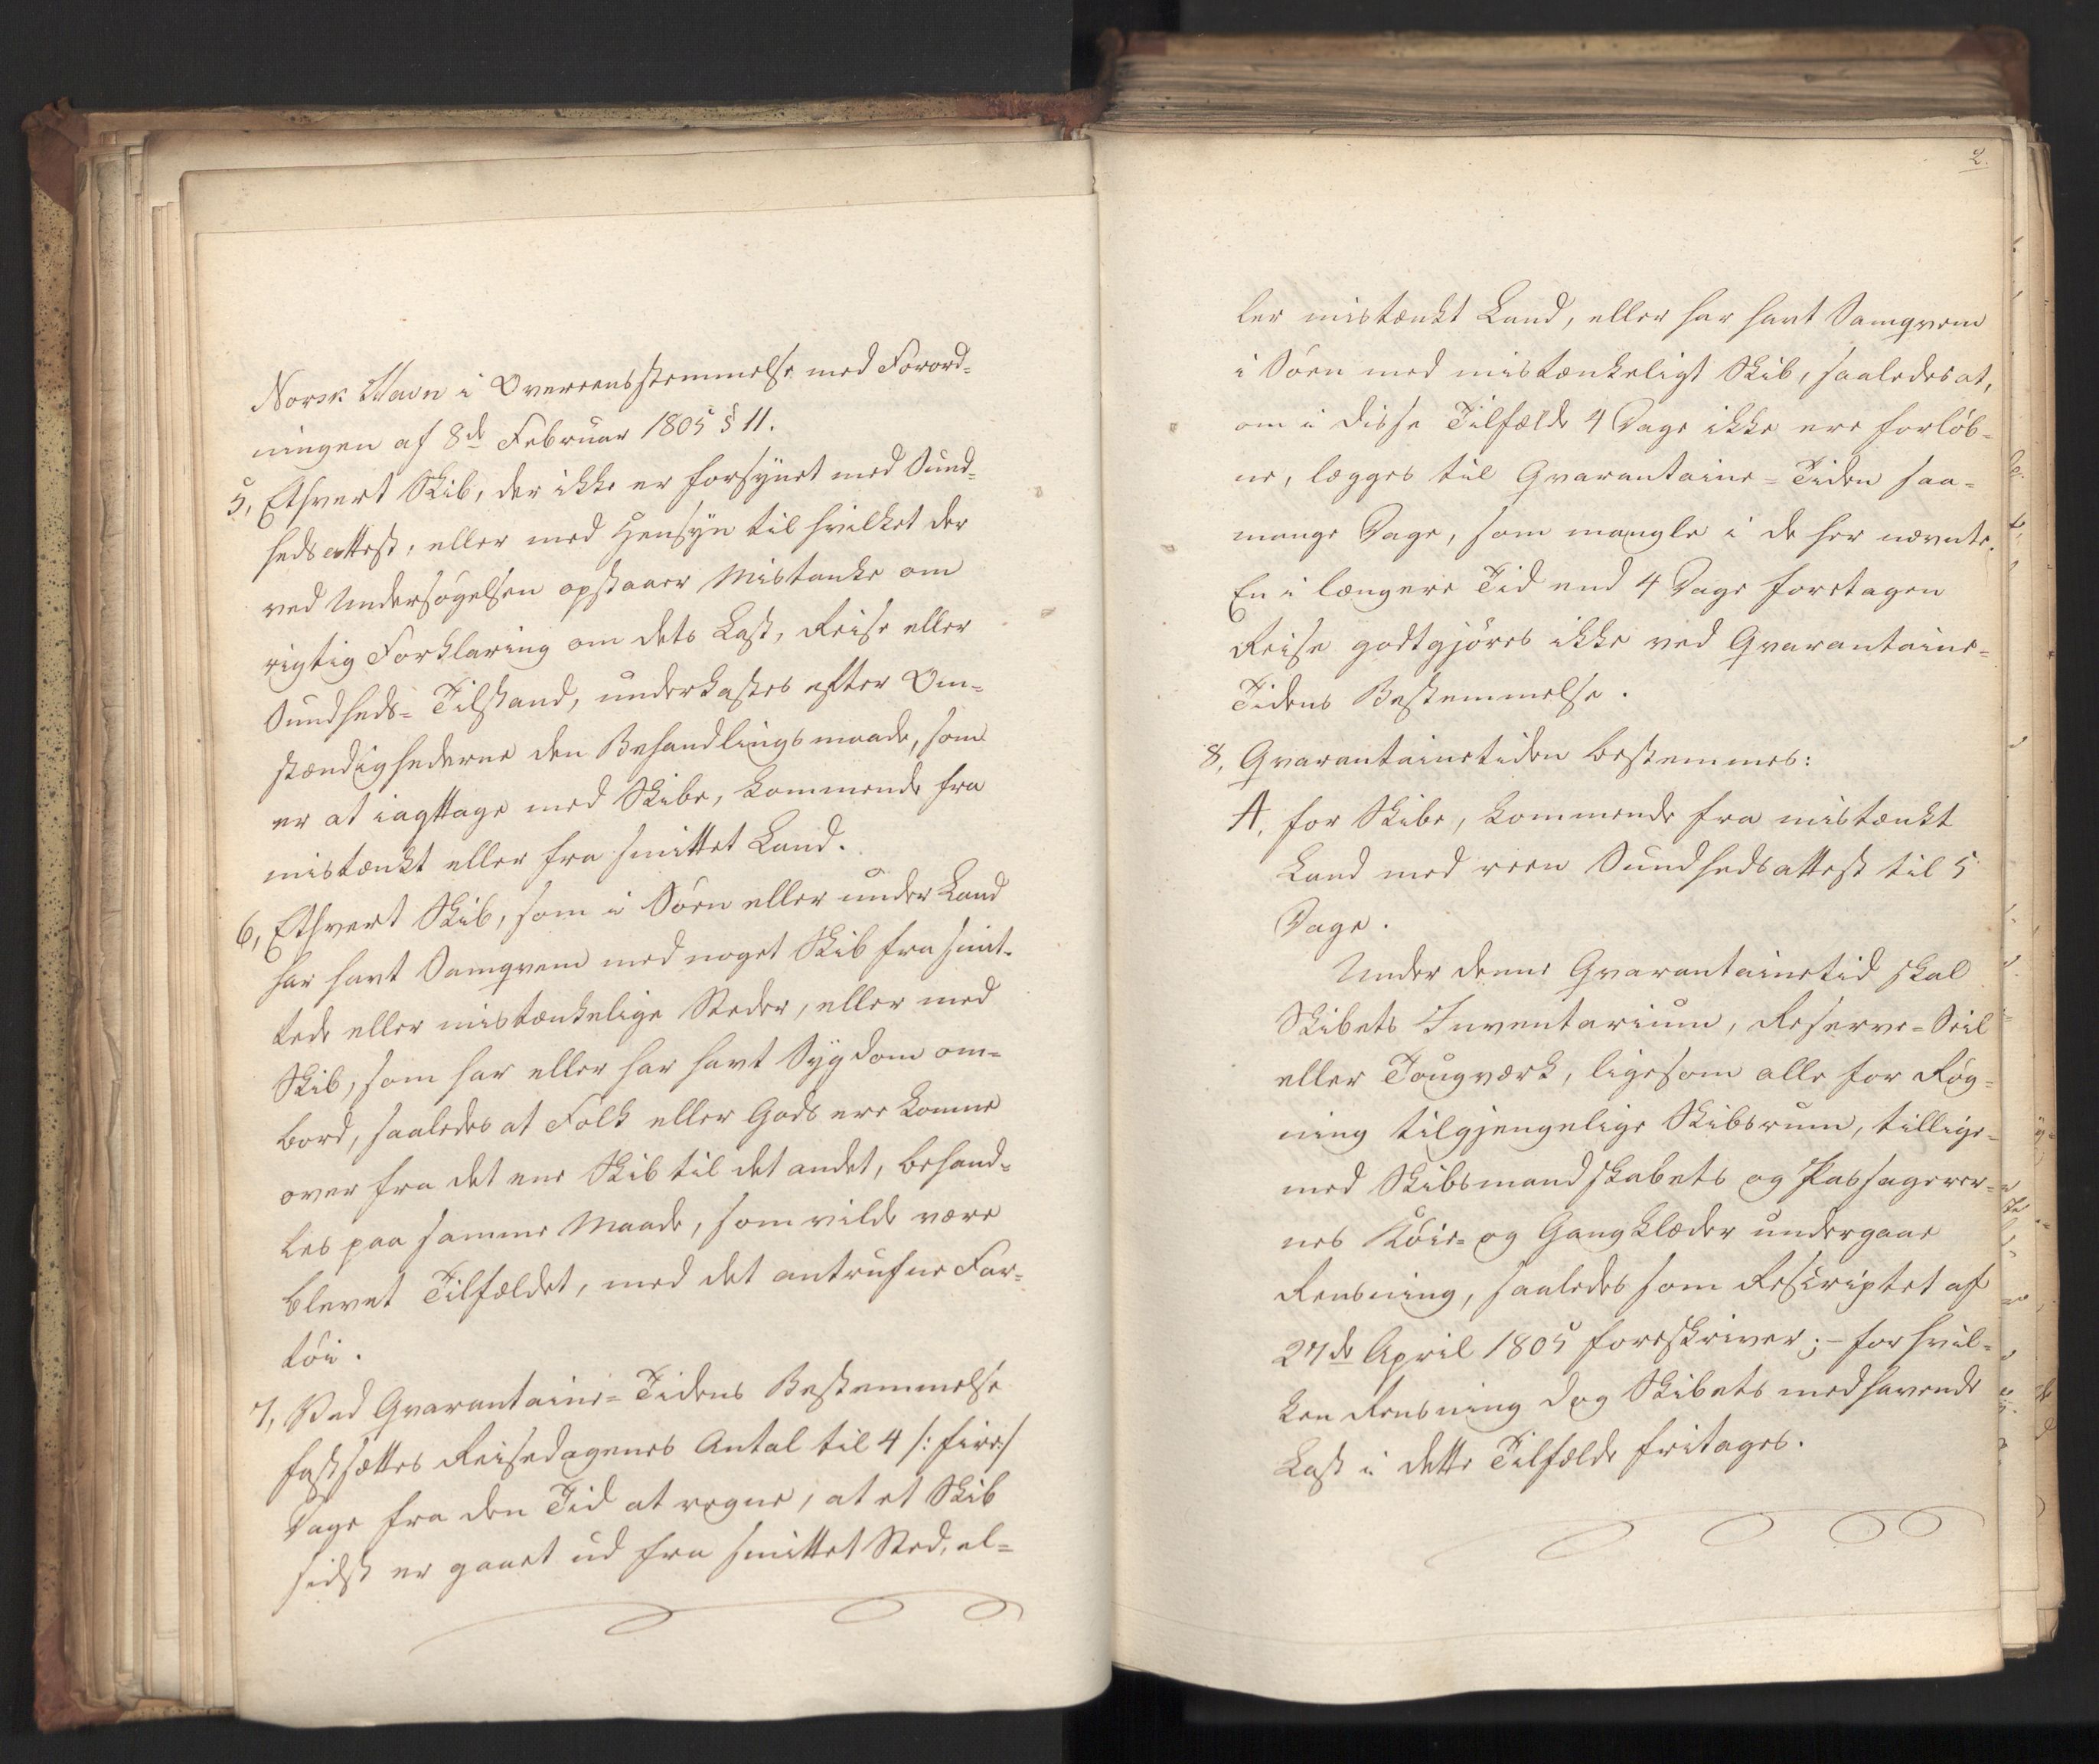 Norsk Havn i Overeensstemmelse med Forord-
ningen af 8de Februar 1805 § 11.
5, Ethvert Skib, der ikke er forsynet med Sund-
hedsattest, eller med Hensyn til hvilket der
ved Undersøgelsen opstaaer Mistanke om
rigtig Forklaring om dets Last, Reise eller
Sundheds-Tilstand, underkastes efter Om-
stændighederne den Behandlingsmaade, som
er at iagttage med Skibe, kommende fra
mistænkt eller fra smittet Land.
6, Ethvert Skib, som i Søen eller under Land
har havt Samqvem med noget Skib fra smit-
tede eller mistænkelige Steder, eller med
Skib, som har eller har havt Sygdom om-
bord, saaledes at Folk eller Gods ere komne
over fra det ene Skib til det andet, behand-
les paa samme Maade, som vilde være
blevet Tilfældet, med det antrufne Far-
tøi.
7, Ved Qvarantaine-Tidens Bestemmelse
fastsættes Reisedagenes Antal til 4 /: fire:/
Dage fra den Tid at regne, at et Skib
sidst er gaaet ud fra smittet Sted, el-
2.
ler mistænkt Land, eller har havt Samqvem
i Søen med mistænkeligt Skib, saaledes at,
om i disse Tilfælde 4 Dage ikke ere forløb-
ne, lægges til Qvarantaine-Tiden saa-
mange Dage, som mangle i de her nævnte.
En i længere Tid end 4 Dage foretagen
Reise godtgjøres ikke ved Qvarantaine-
Tidens Bestemmelse.
8, Qvarantainetiden bestemmes:
A, for Skibe, kommende fra mistænkt
Land med reen Sundhedsattest til 5
Dage.
Under denne Qvarantainetid skal
Skibets Inventarium, Reserve-Seil
eller Tougværk, ligesom alle for Røg-
ning tilgjengelige Skibsrum, tillige-
med Skibsmandskabets og Passagerer-
nes Køie- og Gangklæder undergaae
Rensning, saaledes som Rescriptet af
27de April 1805 foreskriver; - for hvil-
ken Rensning dog Skibets medhavende
Last i dette Tilfælde fritages.